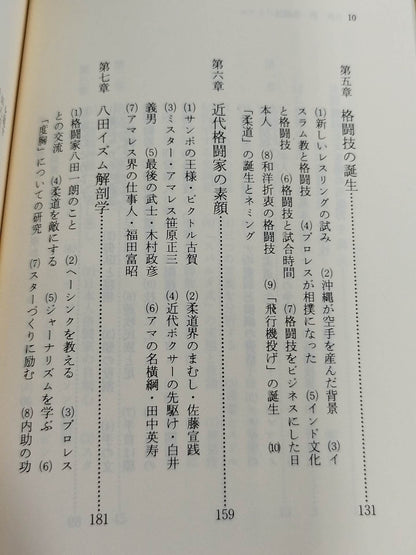 10
第五章　格闘技の誕生……131
(1)新しいレスリングの試み　(2)沖縄が空手を産んだ背景　(3)イ
スラム教と格闘技　(4)プロレスが相撲になった　(5)インド文化
と格闘技　(6)格闘技と試合時間　(7)格闘技をビジネスにした日
本人　(8)和洋折衷の格闘技　(9)「飛行機投げ」の誕生　(10)
「柔道」の誕生とネーミング
第六章　近代格闘家の素顔……159
(1)サンボの王様・ビクトル古賀　(2)柔道界のまむし・佐藤宣践
(3)ミスター・アマレス笹原正三　(4)近代ボクサーの先駆け・白井
義男　(5)最後の武士・木村政彦　(6)アマの名横綱・田中英寿
(7)アマレス界の仕事人・福田富昭
第七章　八田イズム解剖学……181
(1)格闘家八田一朗のこと　(2)ヘーシンクを教える　(3)プロレス
との交流　(4)柔道を敵にする　(5)ジャーナリズムを学ぶ　(6)
「度胸」についての研究　(7)スターづくりに励む　(8)内助の功